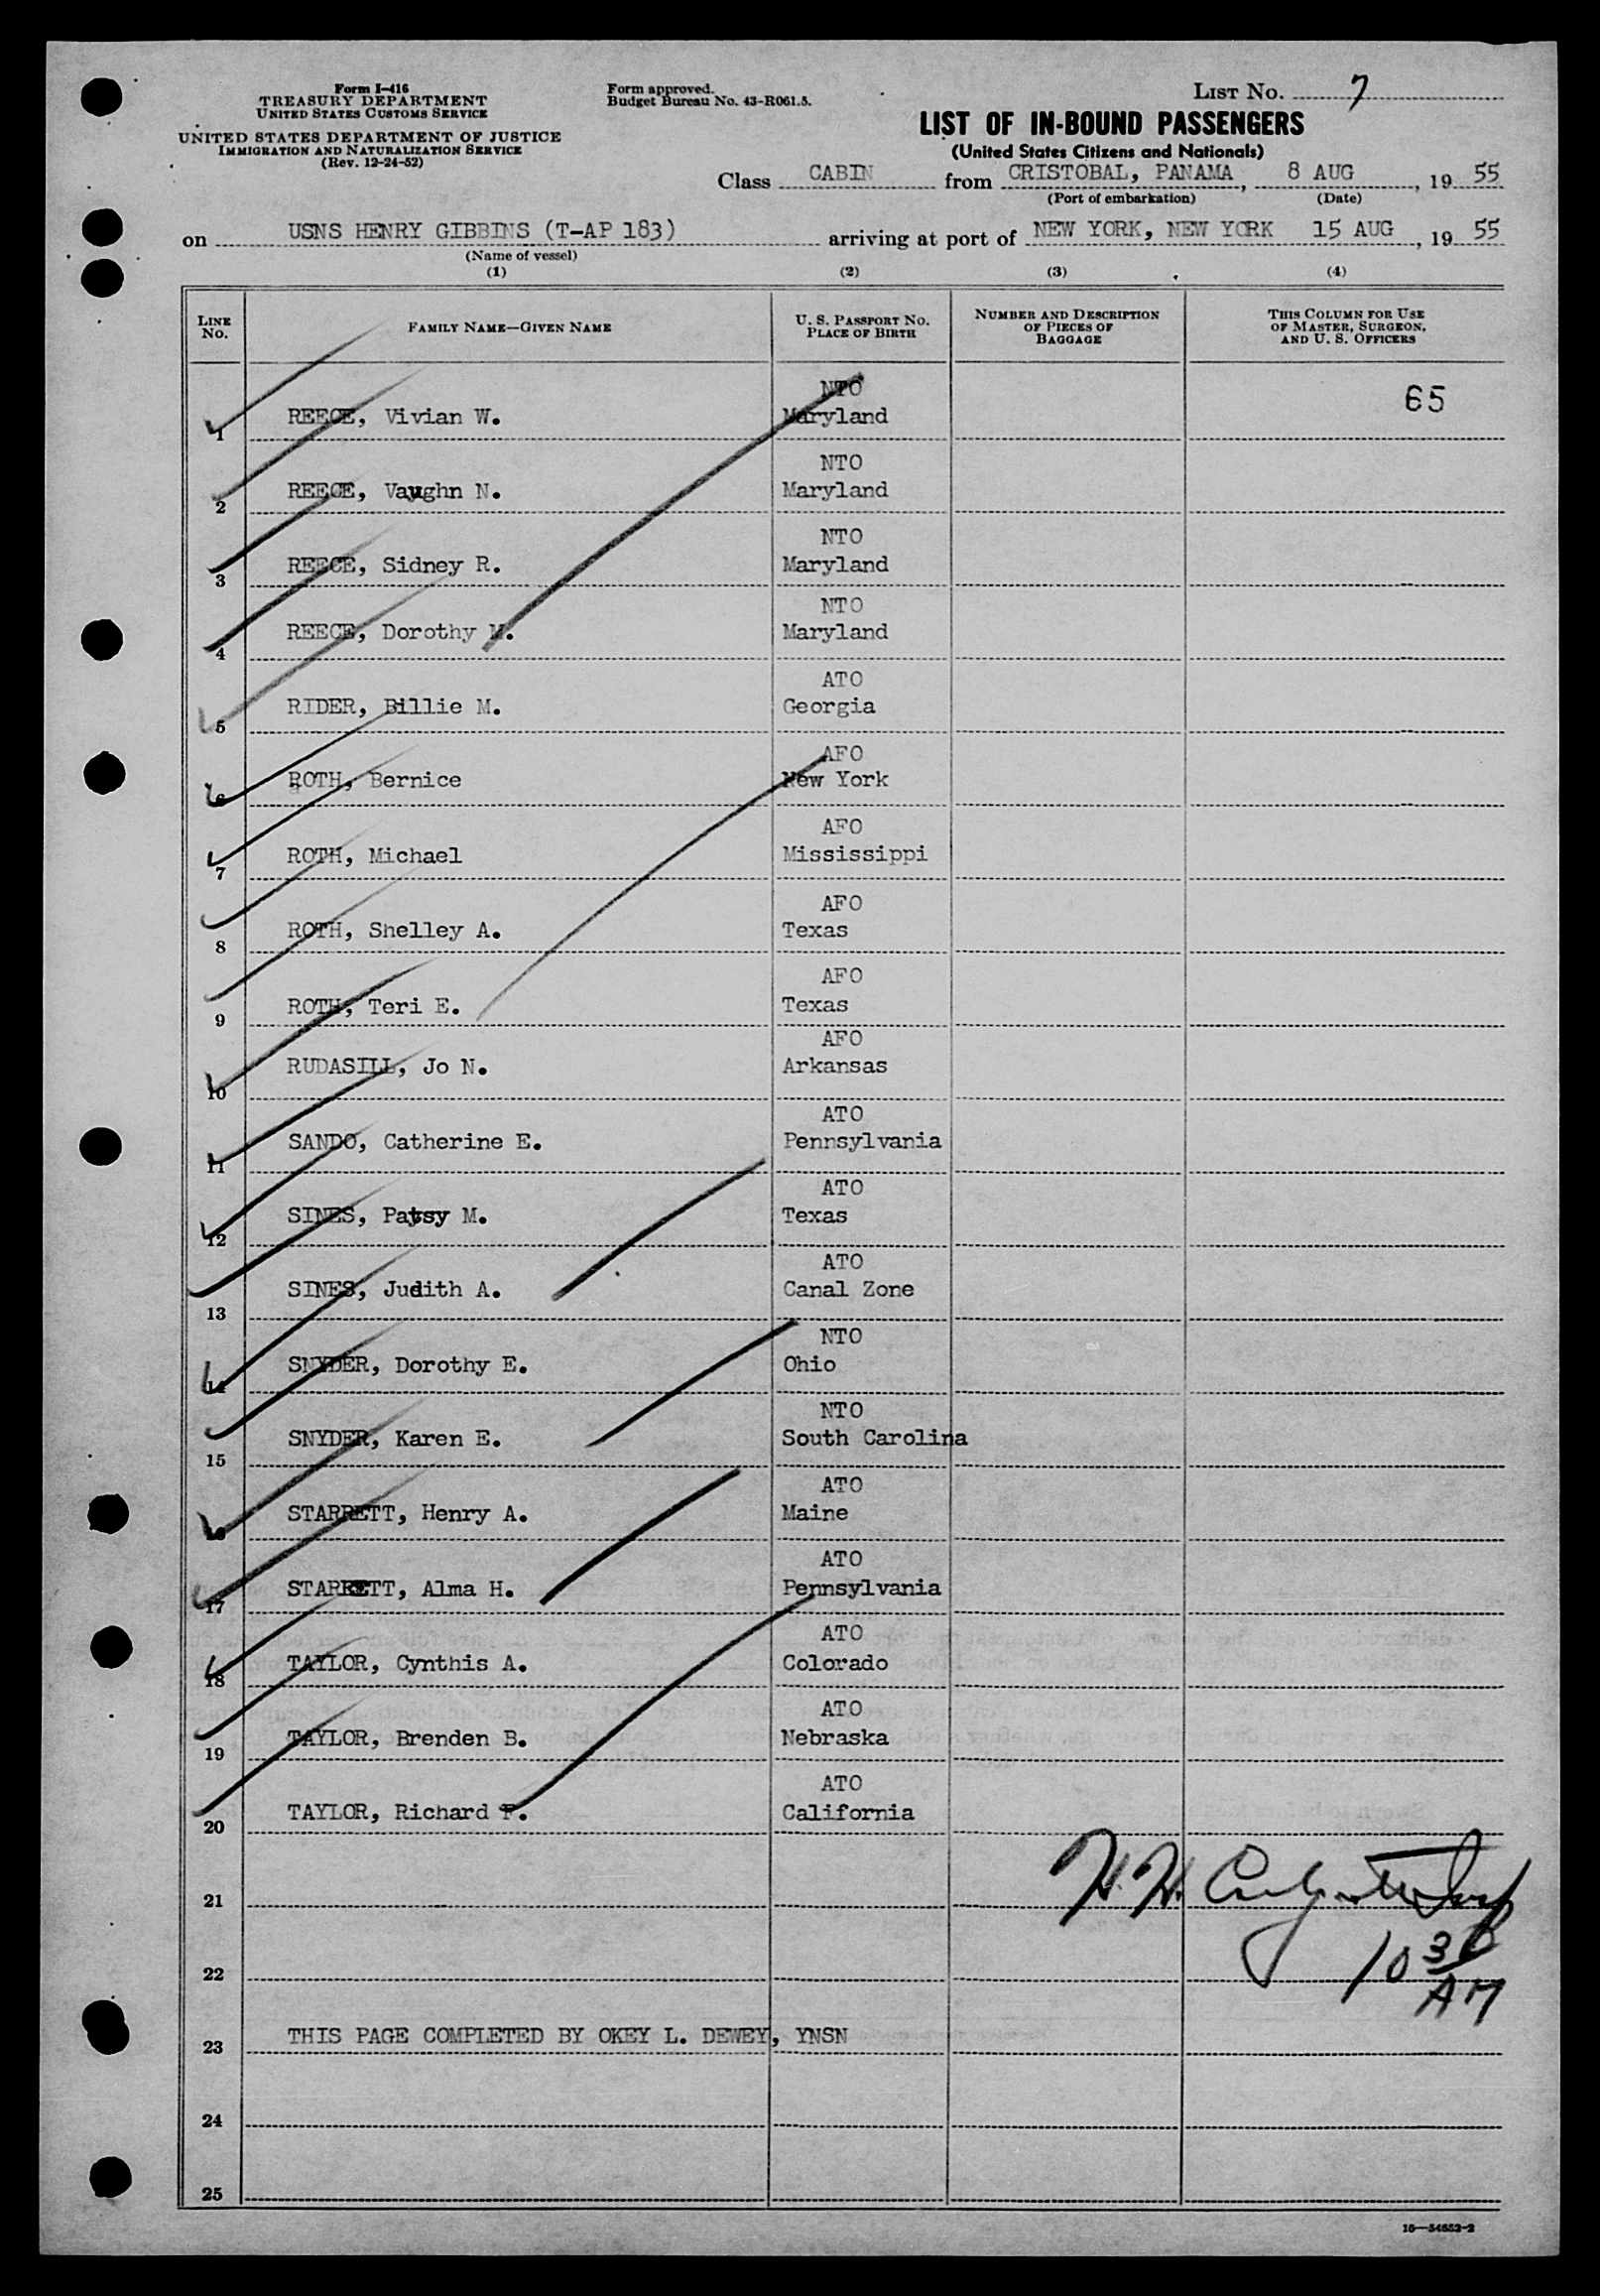 Form I-416
TREASURY DEPARTMENT
UNITED STATES CUSTOMS SERVICE
UNITED STATES DEPARTMENT OF JUSTICE
IMMIGRATION AND NATURALIZATION SERVICE
(Rev. 12-24-52)
Form approved.
Budget Bureau No. 43-R061.5.
LIST NO. 7
LIST OF IN-BOUND PASSENGERS
(United States Citizens and Nationals)
Class CABIN from CRISTOBAL, PANAMA, 8 AUG, 19 55
(Port of embarkation) (Date)
on USNS HENRY GIBBINS (T-AP 183) arriving at port of NEW YORK, NEW YORK 15 AUG, 19 55
(Name of vessel)
(1) (2) (3) (4)
LINE NO. FAMILY NAME—GIVEN NAME U. S. PASSPORT NO. PLACE OF BIRTH NUMBER AND DESCRIPTION OF PIECES OF BAGGAGE THIS COLUMN FOR USE OF MASTER, SURGEON, AND U. S. OFFICERS
NTO 65
1 REECE, Vivian W. Maryland
NTO
2 REECE, Vaughn N. Maryland
NTO
3 REECE, Sidney R. Maryland
NTO
4 REECE, Dorothy M. Maryland
ATO
5 RIDER, Billie M. Georgia
AFO
6 ROTH, Bernice New York
AFO
7 ROTH, Michael Mississippi
AFO
8 ROTH, Shelley A. Texas
AFO
9 ROTH, Teri E. Texas
AFO
10 RUDASILL, Jo N. Arkansas
ATO
11 SANDO, Catherine E. Pennsylvania
ATO
12 SINES, Patsy M. Texas
ATO
13 SINES, Judith A. Canal Zone
NTO
14 SNYDER, Dorothy E. Ohio
NTO
15 SNYDER, Karen E. South Carolina
ATO
16 STARRETT, Henry A. Maine
ATO
17 STARRETT, Alma H. Pennsylvania
ATO
18 TAYLOR, Cynthis A. Colorado
ATO
19 TAYLOR, Brenden B. Nebraska
ATO
20 TAYLOR, Richard F. California
21
22 10 30 AM
23 THIS PAGE COMPLETED BY OKEY L. DEWEY, YNSN
24
25
16—54552-2